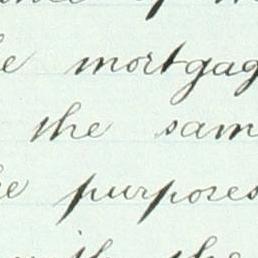 he mortgag
the sam
he purposes
the